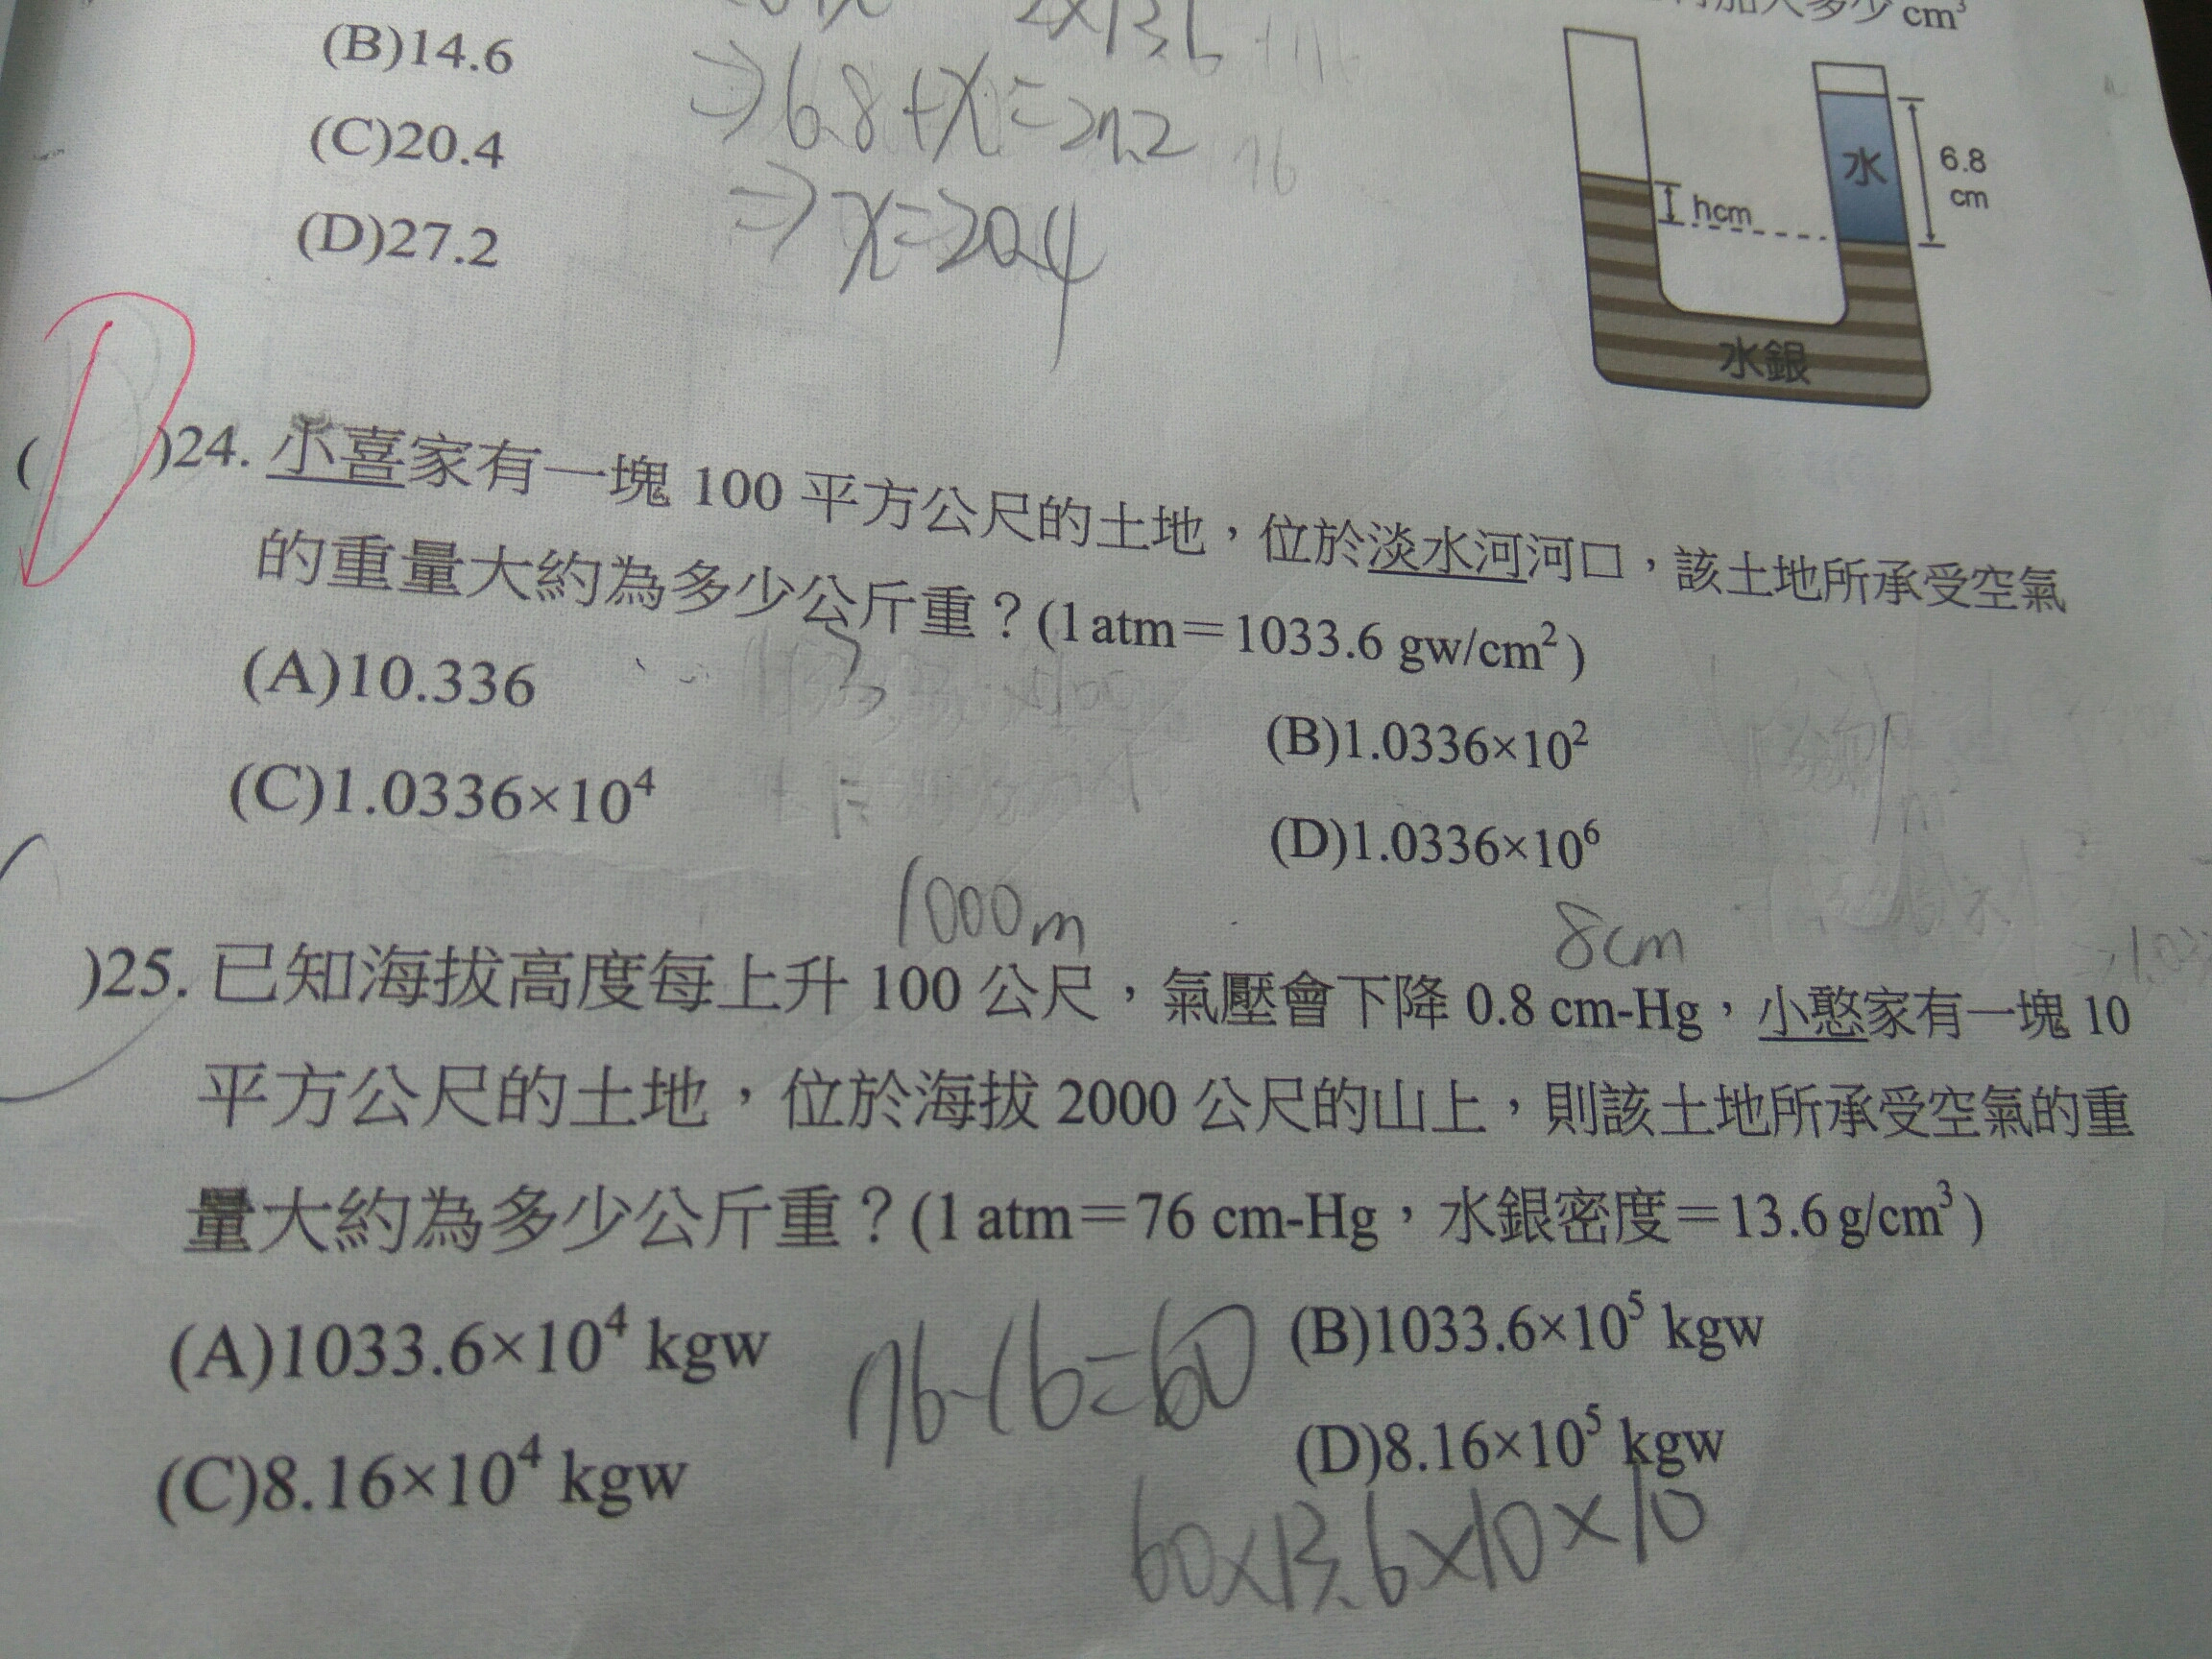 cm³
(B)14.6
⇒6.8+x=27.2
(C)20.4
⇒x=20.4
(D)27.2
水
6.8
cm
hcm
水銀
D
( )24. 小喜家有一塊 100 平方公尺的土地，位於淡水河河口，該土地所承受空氣
的重量大約為多少公斤重？(1 atm＝1033.6 gw/cm²)
(A)10.336
(B)1.0336×10²
(C)1.0336×10⁴
(D)1.0336×10⁶
1000m
8cm
)25. 已知海拔高度每上升 100 公尺，氣壓會下降 0.8 cm-Hg，小憨家有一塊 10
平方公尺的土地，位於海拔 2000 公尺的山上，則該土地所承受空氣的重
量大約為多少公斤重？(1 atm＝76 cm-Hg，水銀密度＝13.6 g/cm³)
(A)1033.6×10⁴ kgw
76-16=60
(B)1033.6×10⁵ kgw
(C)8.16×10⁴ kgw
(D)8.16×10⁵ kgw
60×13.6×10×10